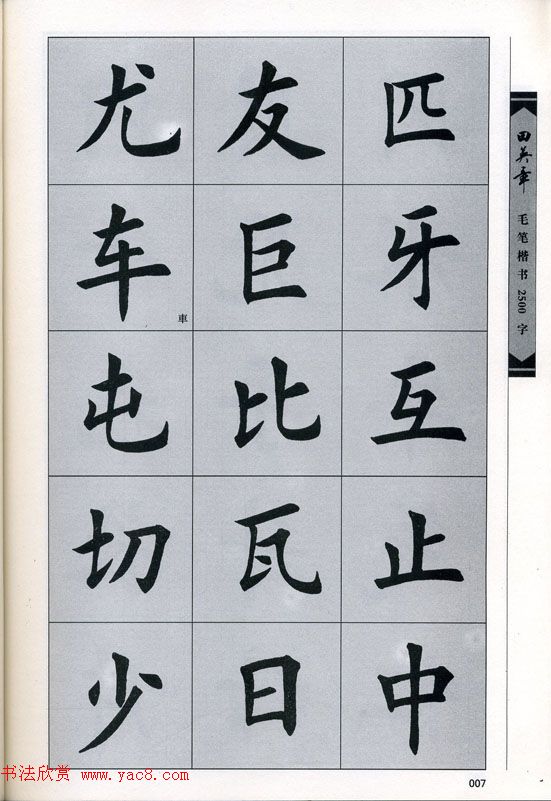 尤 友 匹
车 車 巨 牙
屯 比 互
切 瓦 止
少 日 中
田英章
毛笔楷书2500字
书法欣赏 www.yac8.com
007